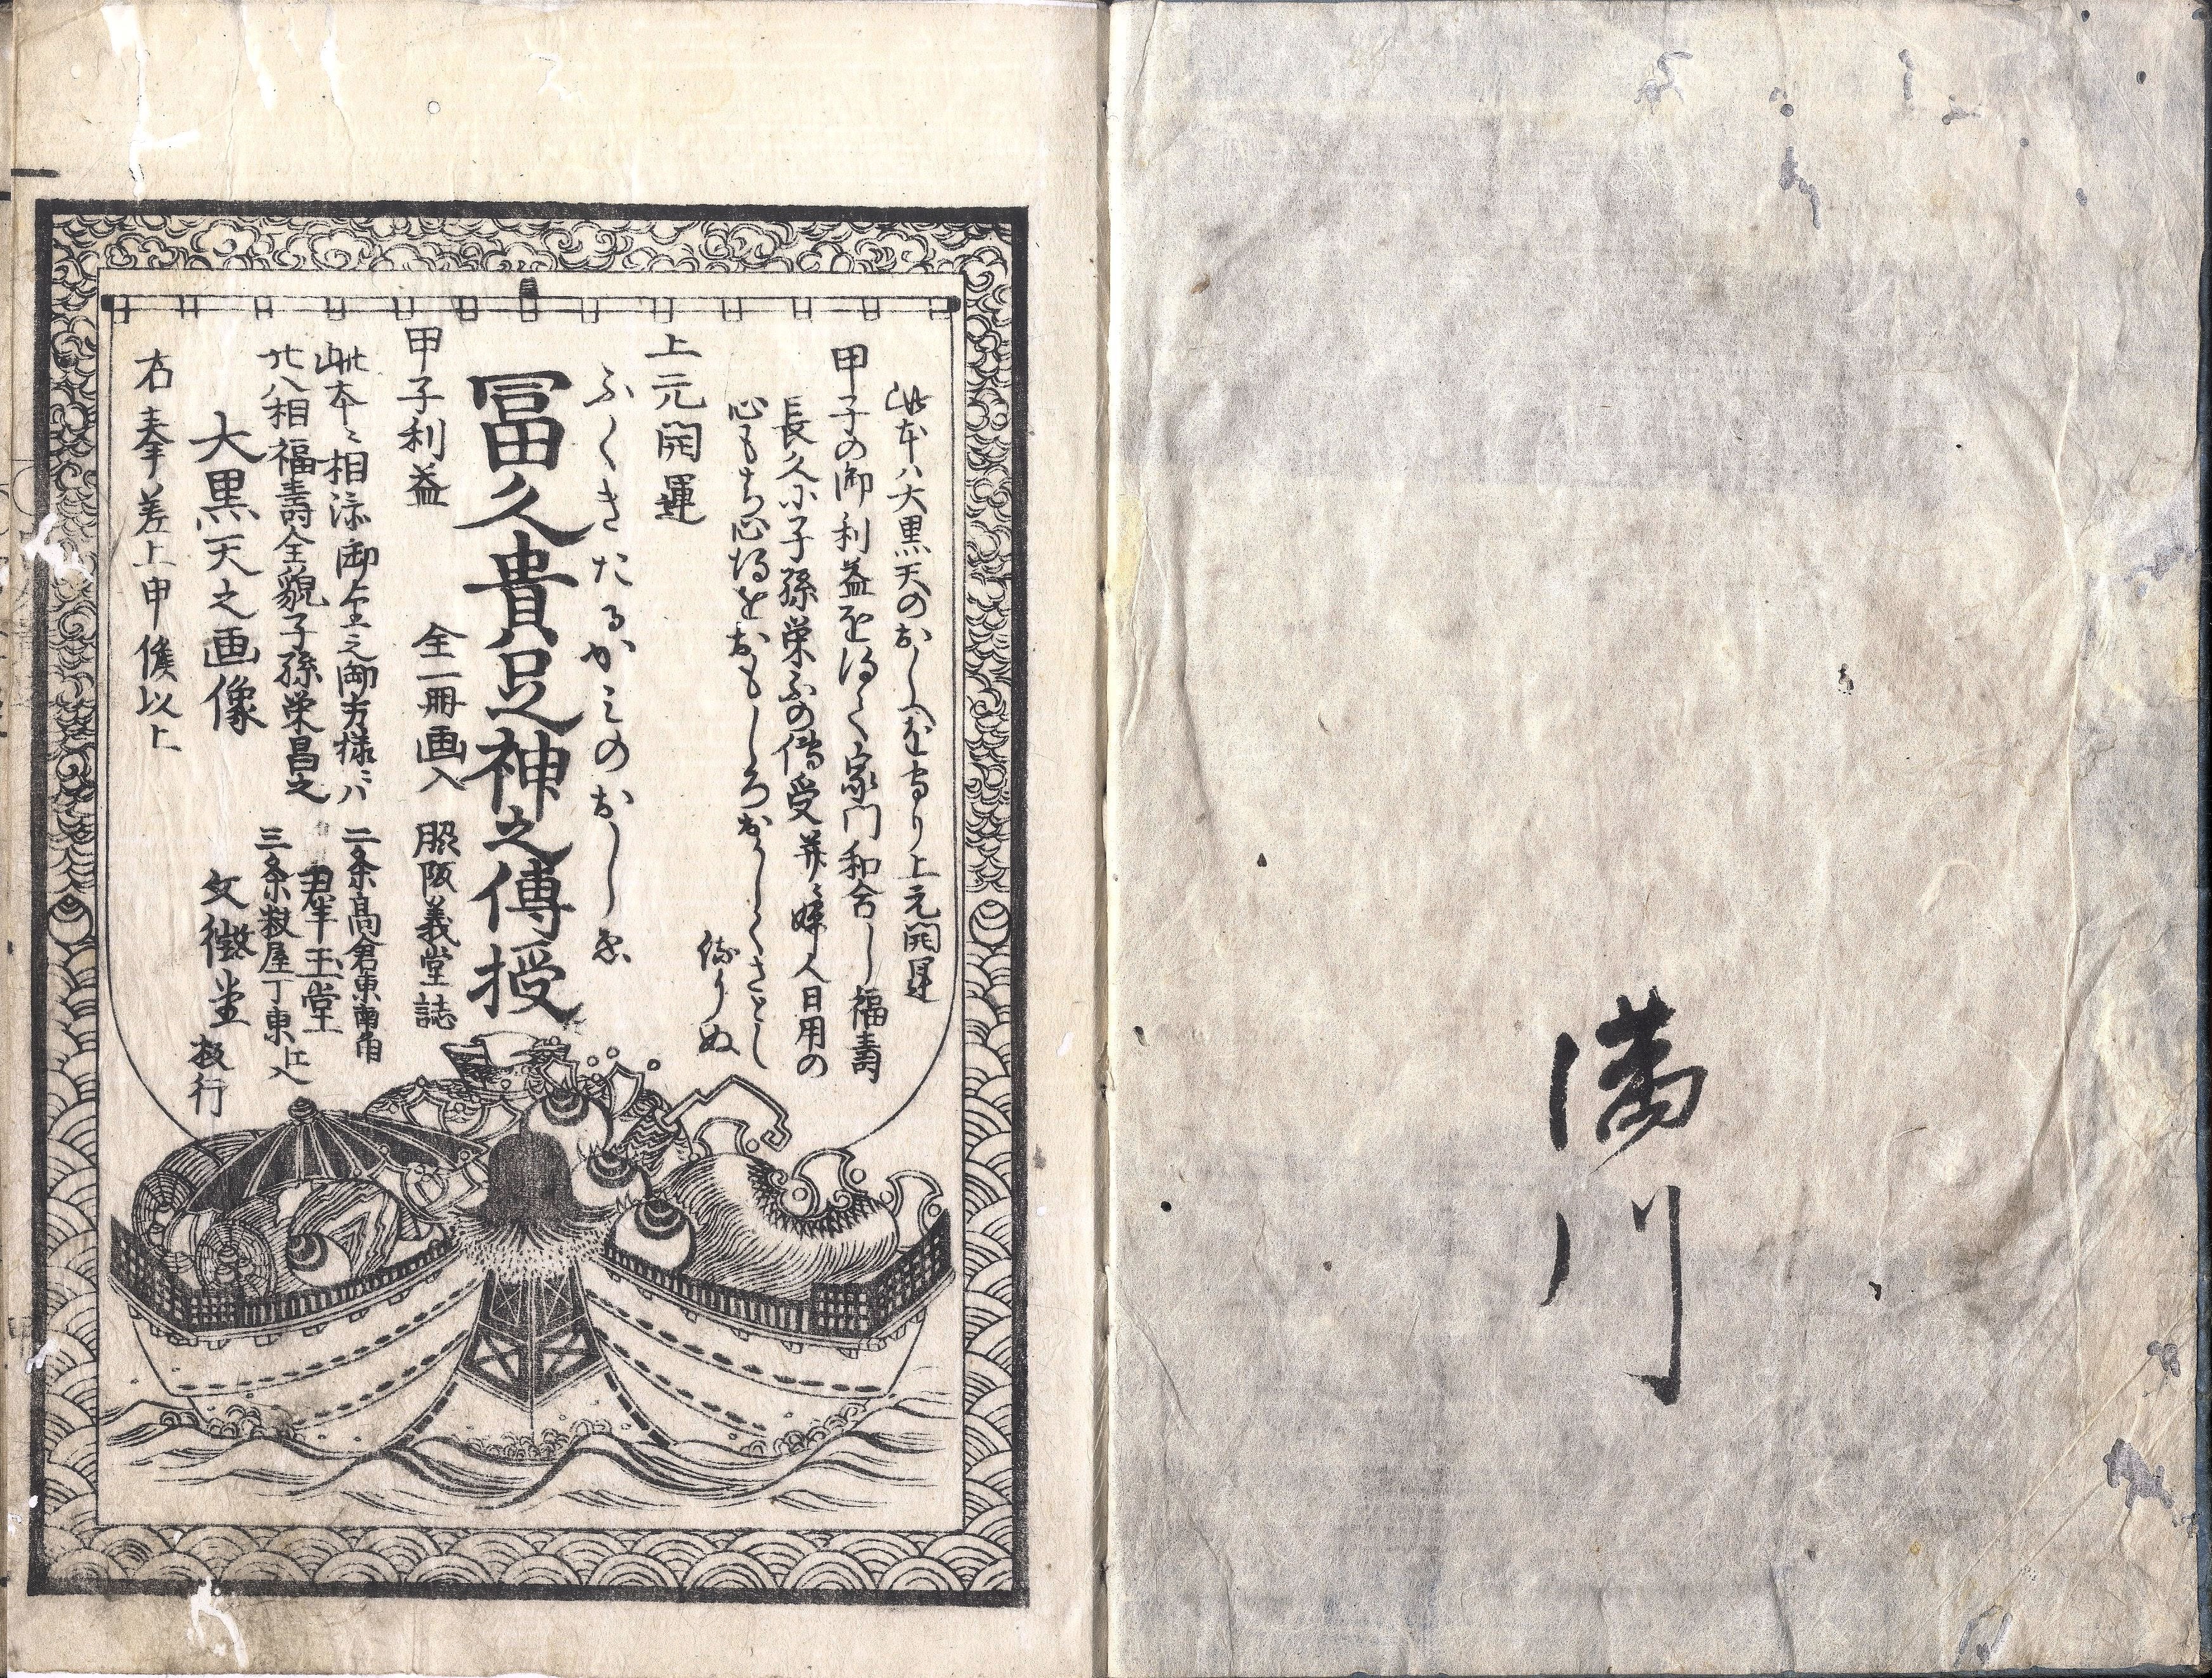 満川
此本ハ大黒天のおしへを守り上元開運
甲子の御利益を得て家門和合し福壽
長久に子孫栄ふの傳受并ニ婦人日用の
心もち心得をおもしろおかしくさとし
侍りぬ
上元開運
ふくきたるかみのおしゑ
冨久貴足神之傳授
甲子利益
全一冊画入
照阪義堂誌
此本ニ相添御金之御方様ニハ
八相福壽全貌子孫栄昌之
大黒天之画像
右奉差上申候以上
二条高倉東南角
群玉堂
三条麩屋丁東江入
文徴堂
板行